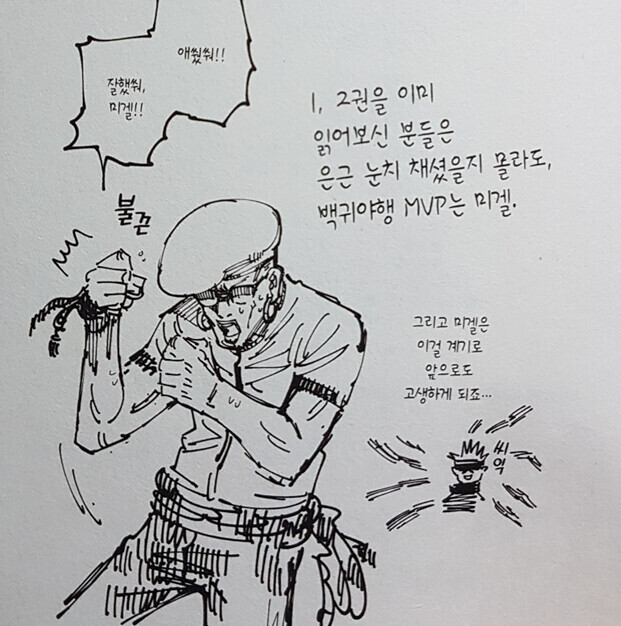 애썼쒀!!
잘했쒀,
미겔!!
불끈
1, 2권을 이미
읽어보신 분들은
은근 눈치 채셨을지 몰라도,
백귀야행 MVP는 미겔.
그리고 미겔은
이걸 계기로
앞으로도
고생하게 되죠…
씨익